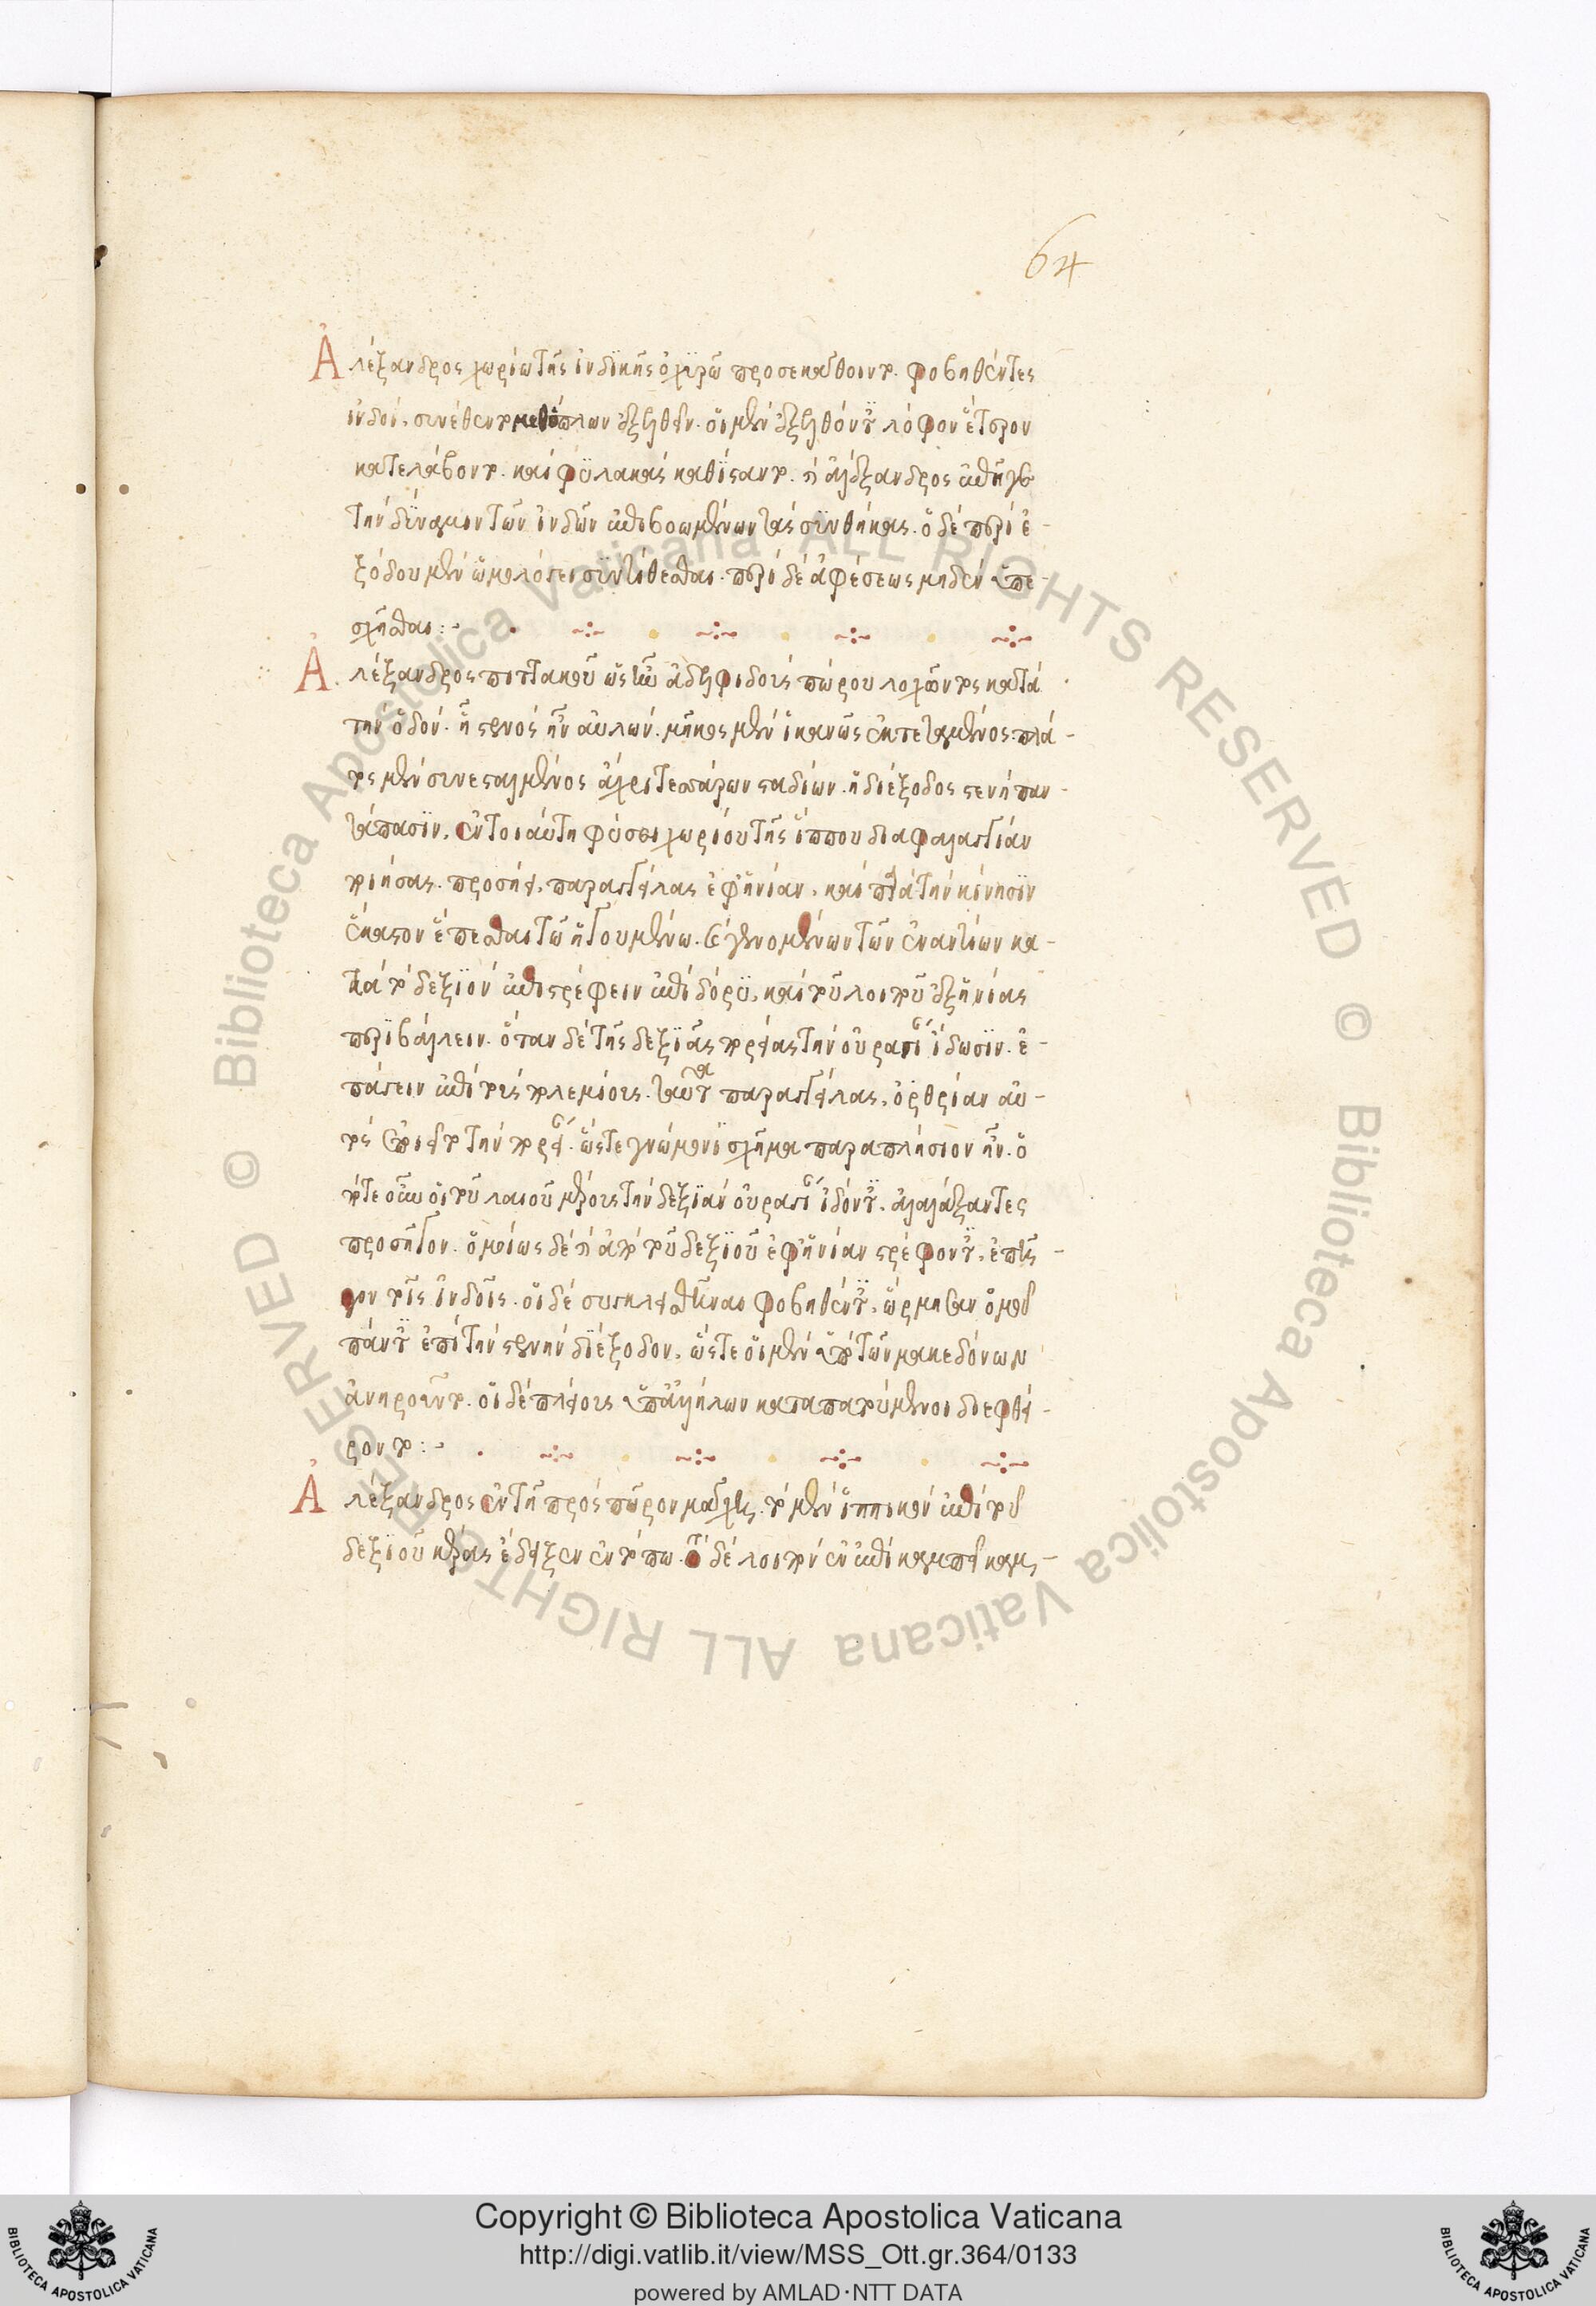 64
Ἀλέξανδρος χωρίω τῆς ἰνδϊκῆς ὀχϋρῶ προσεκάθοιντο. φοβηθέντες
ἰνδοί, συνέθεντο μεθόπλων ἐξελθεῖν. οἱ μὲν ἐξελθόντες λόφον ἕτερον
κατελάβοντο. καὶ φϋλακὰς καθΐσαντο. καὶ ἀλέξανδρος ἐπῆγε
τὴν δΰναμιν τῶν ἰνδῶν ἐπιβοωμένων τὰς σϋνθήκας. ὁ δὲ περὶ ἐ-
ξόδου μὲν ὡμολόγει σϋντίθεσθαι. περὶ δὲ ἀφέσεως μηδὲν ὑπε-
σχῆσθαι :~
Ἀλέξανδρος πιττακοῦ ὡς τῶ ἀδελφιδοὺς πώρου λοχῶντος κατὰ
τὴν ὁδόν. ἦ στενὸς ἦν αὐλών. μῆκος μὲν ἱκανῶς ἐκτεταμένος. πλά-
τος μὲν συνεσταλμένος ἄχρι τεσσάρων σταδίων. ἡ διέξοδος στενὴ παν-
τάπασϊν. ἐν τοιαύτη φύσει χωρίου τῆς ἵππου διαφαλαγγίαν
ποιήσας. προσῆγε. παραγγείλας ἐφ' ἡνίαν. καὶ πλα τὴν κίνησϊν
ἕκαστον ἕπεσθαι τῶ ἡγουμένω. ἐγγενομένων τῶν ἐναντίων κα-
τὰ τὸ δεξϊὸν ἐπιστρέφειν ἐπὶ δόρϋ, καὶ τοῦ λοιποῦ ἐξ ἡνίας
περϊβάλλειν. ὅταν δὲ τῆς δεξϊᾶς πορείας τὴν οὐραγίαν ἴδωσϊν. ἐ-
πάγειν ἐπὶ τοὺς πολεμίους. ταῦτα παραγγείλας, ὀρθρίαν αὐ-
τὸς ἐποιεῖτο τὴν πορείαν. ὥστε γνώμονϊ σχῆμα παραπλήσιον ἦν. ὁ
πότε οὖν οἱ τοῦ λαιοῦ μέρους τὴν δεξϊὰν οὐραγίαν ἰδόντες. ἀλαλάξαντες
προσῆγον. ὁμοίως δὲ καὶ ἀπὸ τοῦ δεξϊοῦ ἐφ' ἡνίαν στρέφοντες, ἐπῆ-
γον τοῖς ἰνδοῖς. οἱ δὲ συγκλεισθῆναι φοβηθέντες, ὥρμησαν ὁμοῦ
πάντες ἐπὶ τὴν στενὴν δϊέξοδον, ὥστε οἱ μὲν ὑπὸ τῶν μακεδόνων
ἀνηροῦντο. οἱ δὲ πλείους ὑπ' ἀλλήλων καταπατούμενοι διεφθεί-
ροντο :~
Ἀλέξανδρος ἐν τῆ πρὸς πῶρον μάχης. τὸ μὲν ἱππικὸν ἐπὶ τοῦ
δεξϊοῦ κέρας ἔδειξεν ἐν τόπω. τὸ δὲ λοιπὸν ἐν ἐπὶ καμπεῖ καμ-
Copyright © Biblioteca Apostolica Vaticana
http://digi.vatlib.it/view/MSS_Ott.gr.364/0133
powered by AMLAD·NTT DATA